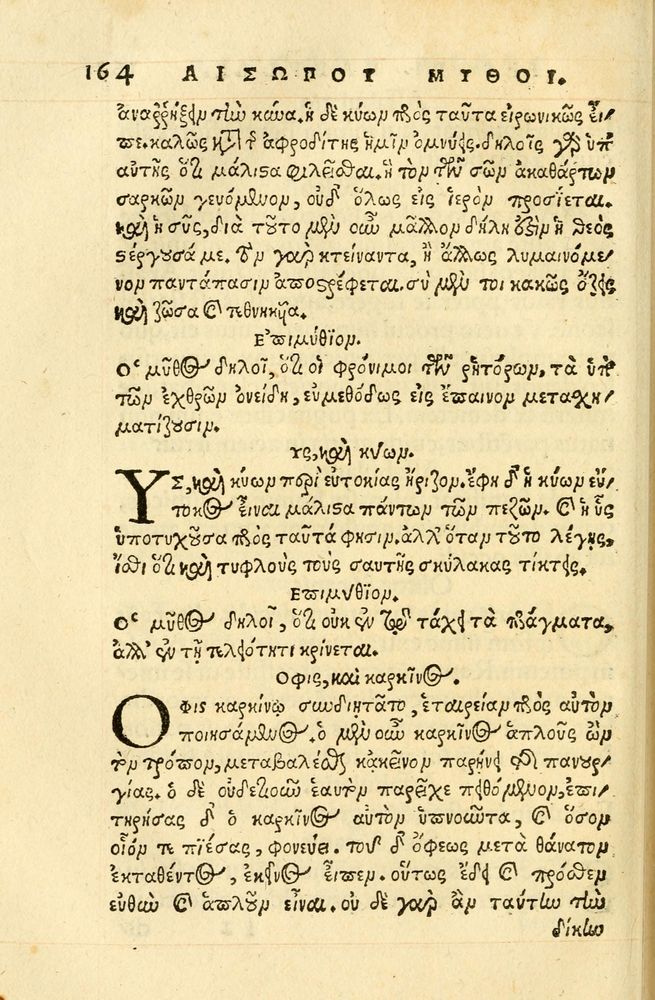 164 ΑΙΣΩΠΟΥ ΜΥΘΟΙ.
ἀναῤῥήξειν τὴν κύνα. ἡ δὲ κύων πρὸς ταῦτα εἰρωνικῶς εἶ-
πε. καλῶς κατὰ τ ἀφροδίτης ἡμῖν ὀμνύεις. δηλοῖς γὰρ ὑπ'
αὐτῆς ὅτι μάλιστα φιλεῖσθαι. ἣ τὸν τῶν σῶν ἀκαθάρτων
σαρκῶν γευόμενον, οὐδ' ὅλως εἰς ἱερὸν προσίεται.
καὶ ἡ σῦς, διὰ τοῦτο μὲν οὖν μᾶλλον δήλη ἐστὶν ἡ θεὸς
στέργουσά με. τὸν γὰρ κτείναντα, ἢ ἄλλως λυμαινόμε-
νον παντάπασιν ἀποστρέφεται. σὺ μέν τοι κακῶς ὄζεις
καὶ ζῶσα καὶ τεθνηκυῖα.
Ἐπιμύθιον.
Ὁ μῦθος δηλοῖ, ὅτι οἱ φρόνιμοι τῶν ῥητόρων, τὰ ὑπὸ
τῶν ἐχθρῶν ὀνείδη, εὐμεθόδως εἰς ἔπαινον μετασχη-
ματίζουσιν.
Υς, καὶ κύων.
ΥΣ, καὶ κύων περὶ εὐτοκίας ἤριζον. ἔφη δ' ἡ κύων εὔ-
τοκος εἶναι μάλιστα πάντων τῶν πεζῶν. καὶ ἡ ὗς
ὑποτυχοῦσα πρὸς ταῦτά φησιν. ἀλλ' ὅταν τοῦτο λέγης,
ἴσθι ὅτι καὶ τυφλοὺς τοὺς σαυτῆς σκύλακας τίκτεις.
Ἐπιμύθιον.
Ὁ μῦθος δηλοῖ, ὅτι οὐκ ἐν τῷ τάχει τὰ πράγματα,
ἀλλ' ἐν τῇ τελειότητι κρίνεται.
Οφις, καὶ καρκῖνος.
ΟΦις καρκίνῳ συνδιητᾶτο, ἑταιρείαν πρὸς αὐτὸν
ποιησάμενος. ὁ μὲν οὖν καρκῖνος ἁπλοῦς ὢν
τὸν τρόπον, μεταβαλέσθαι κἀκεῖνον παρήνει τῆς πανουρ-
γίας. ὁ δὲ οὐδετιοῦν ἑαυτὸν παρεῖχε πειθόμενον, ἐπι-
τηρήσας δ' ὁ καρκῖνος αὐτὸν ὑπνοῦντα, καὶ ὅσον
οἷόν τε πιέσας, φονεύει. τοῦ δ' ὄφεως μετὰ θάνατον
ἐκταθέντος, ἐκεῖνος εἶπεν. οὕτως ἔδει καὶ πρόσθεν
εὐθὺν καὶ ἁπλοῦν εἶναι. οὐ δὲ γὰρ ἂν ταύτην τὴν
δίκην